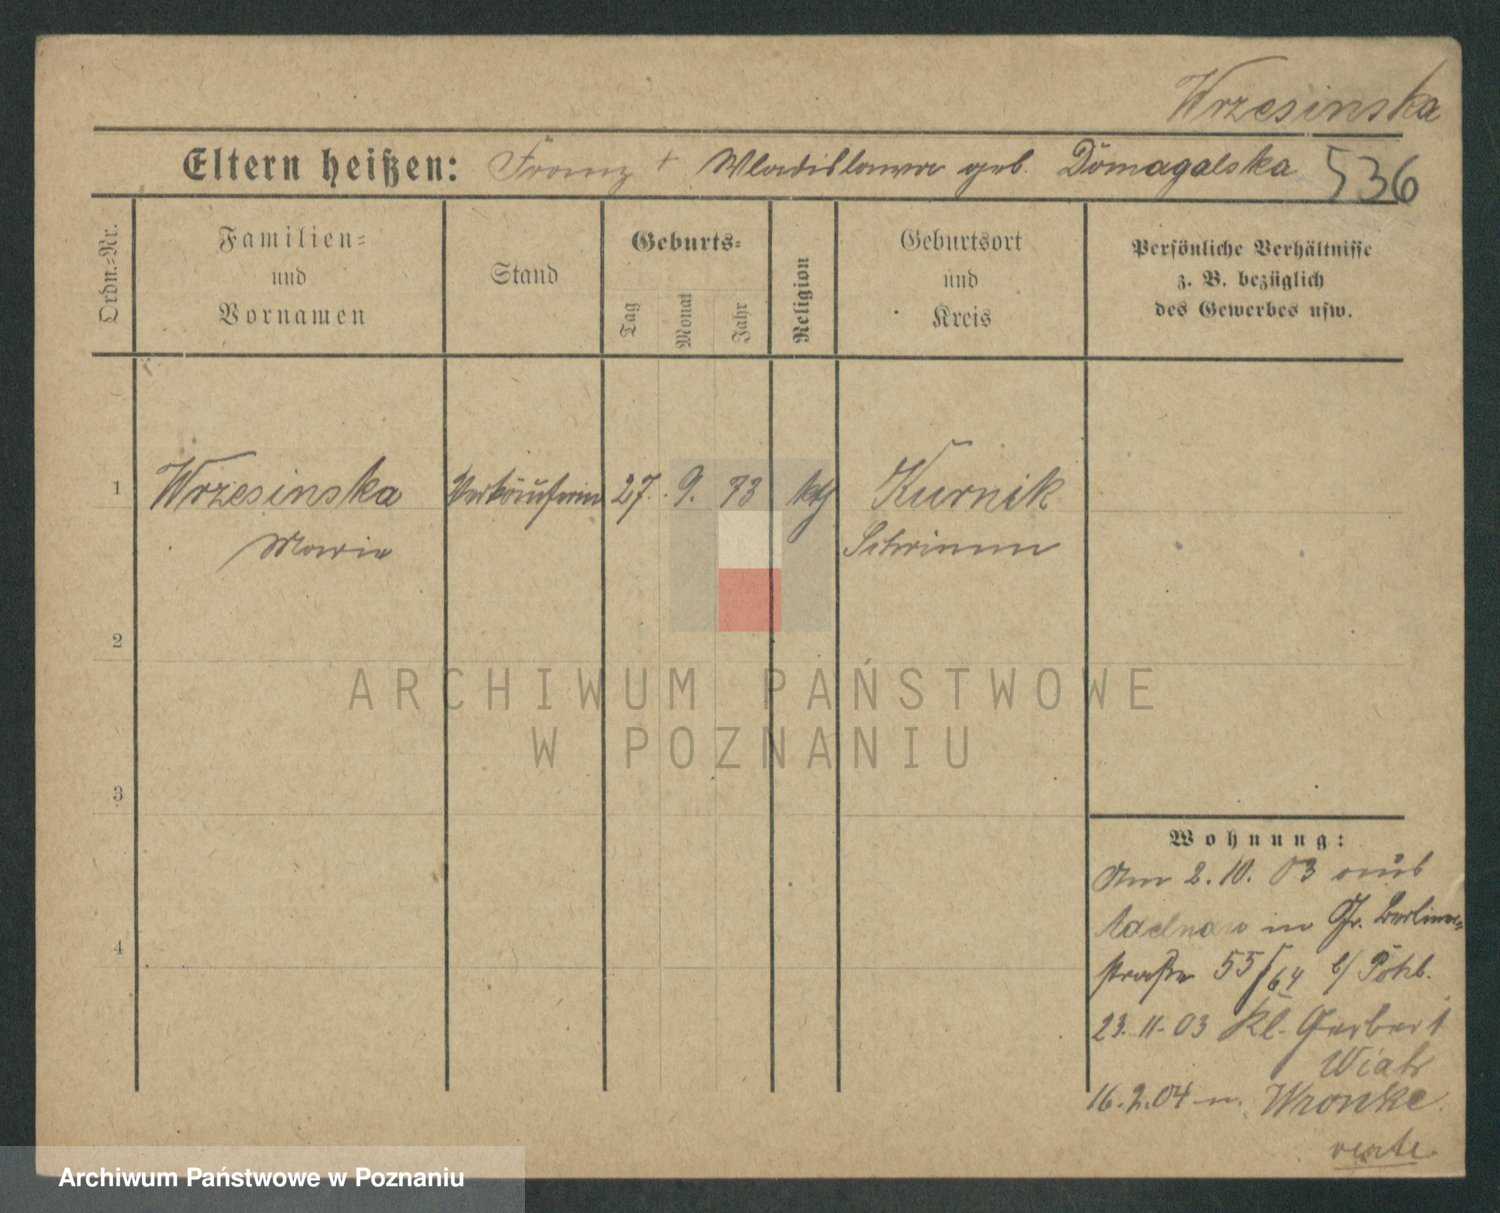 Wrzesinska
Eltern heißen: Franz + Wladislawa geb. Domagalska 536
Ordn.-Nr.
Familien-
und
Vornamen
Stand
Geburts-
Tag
Monat
Jahr
Religion
Geburtsort
und
Kreis
Persönliche Verhältnisse
z. B. bezüglich
des Gewerbes usw.
1 Wrzesinska Verkäuferin 27. 9. 73 kth Kurnik
Maria Schrimm
2
3
4
Wohnung:
Am 2.10.03 aus
Adelnau in Gr. Berliner-
straße 55/64 b/
23.11.03 Kl. Gerber 1
16.2.04 n. Wronke
verte
ARCHIWUM PAŃSTWOWE
W POZNANIU
Archiwum Państwowe w Poznaniu